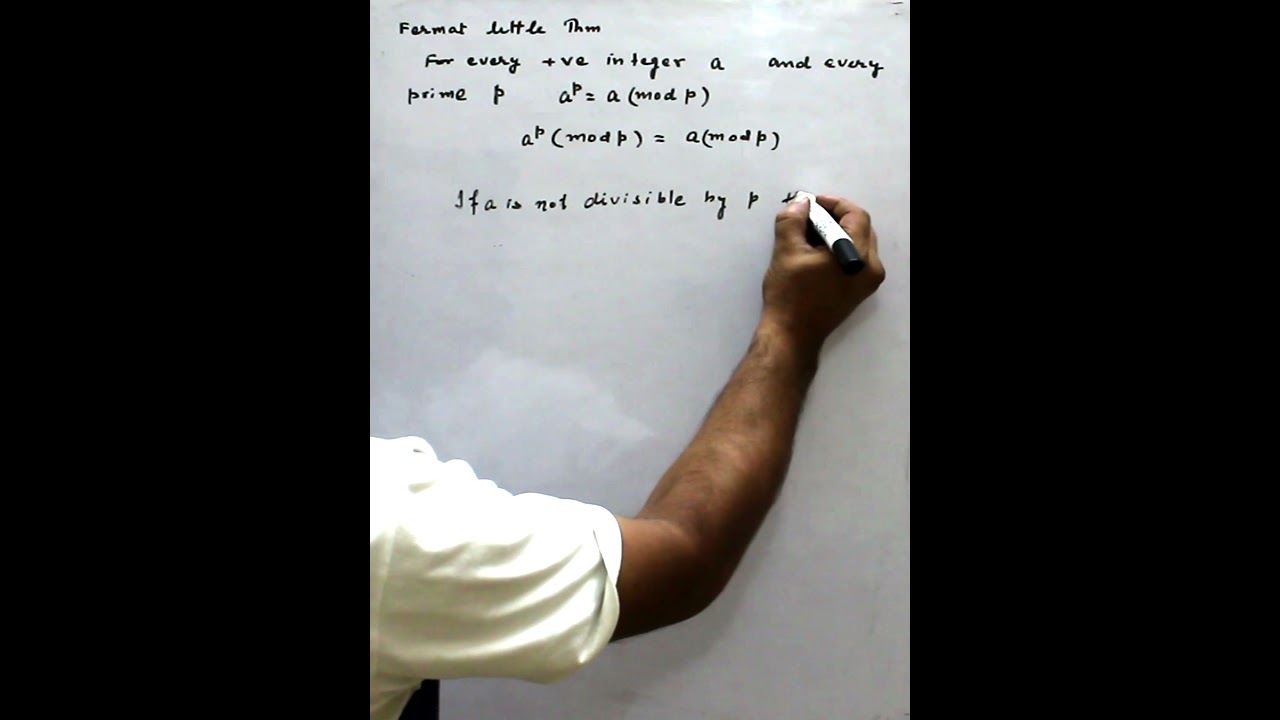 Fermat little Thm
For every +ve integer a and every
prime p aᵖ = a (mod p)
aᵖ (mod p) = a (mod p)
If a is not divisible by p